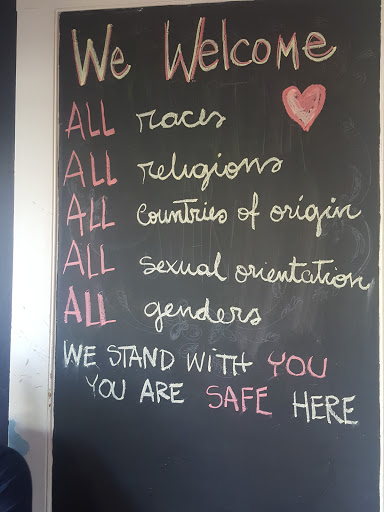 We Welcome
ALL races
ALL religions
ALL Countries of origin
ALL sexual orientation
ALL genders
WE STAND WITH YOU
YOU ARE SAFE HERE